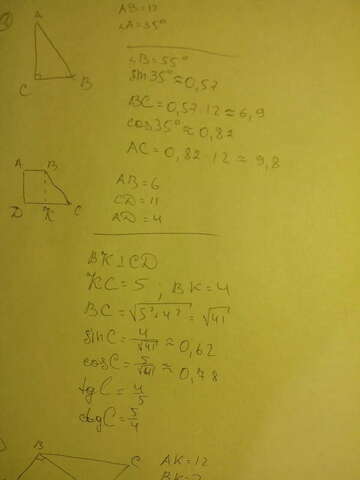 AB=12
∠A=35°
A
C
B
∠B=55°
sin35°≈0,57
BC=0,57·12≈6,9
cos35°≈0,82
AC=0,82·12≈9,8
A B
D K C
AB=6
CD=11
AD=4
BK⊥CD
KC=5 ; BK=4
BC=√5²+4²=√41
sinC=4/√41≈0,62
cosC=5/√41≈0,78
tgC=4/5
ctgC=5/4
B
C
AK=12